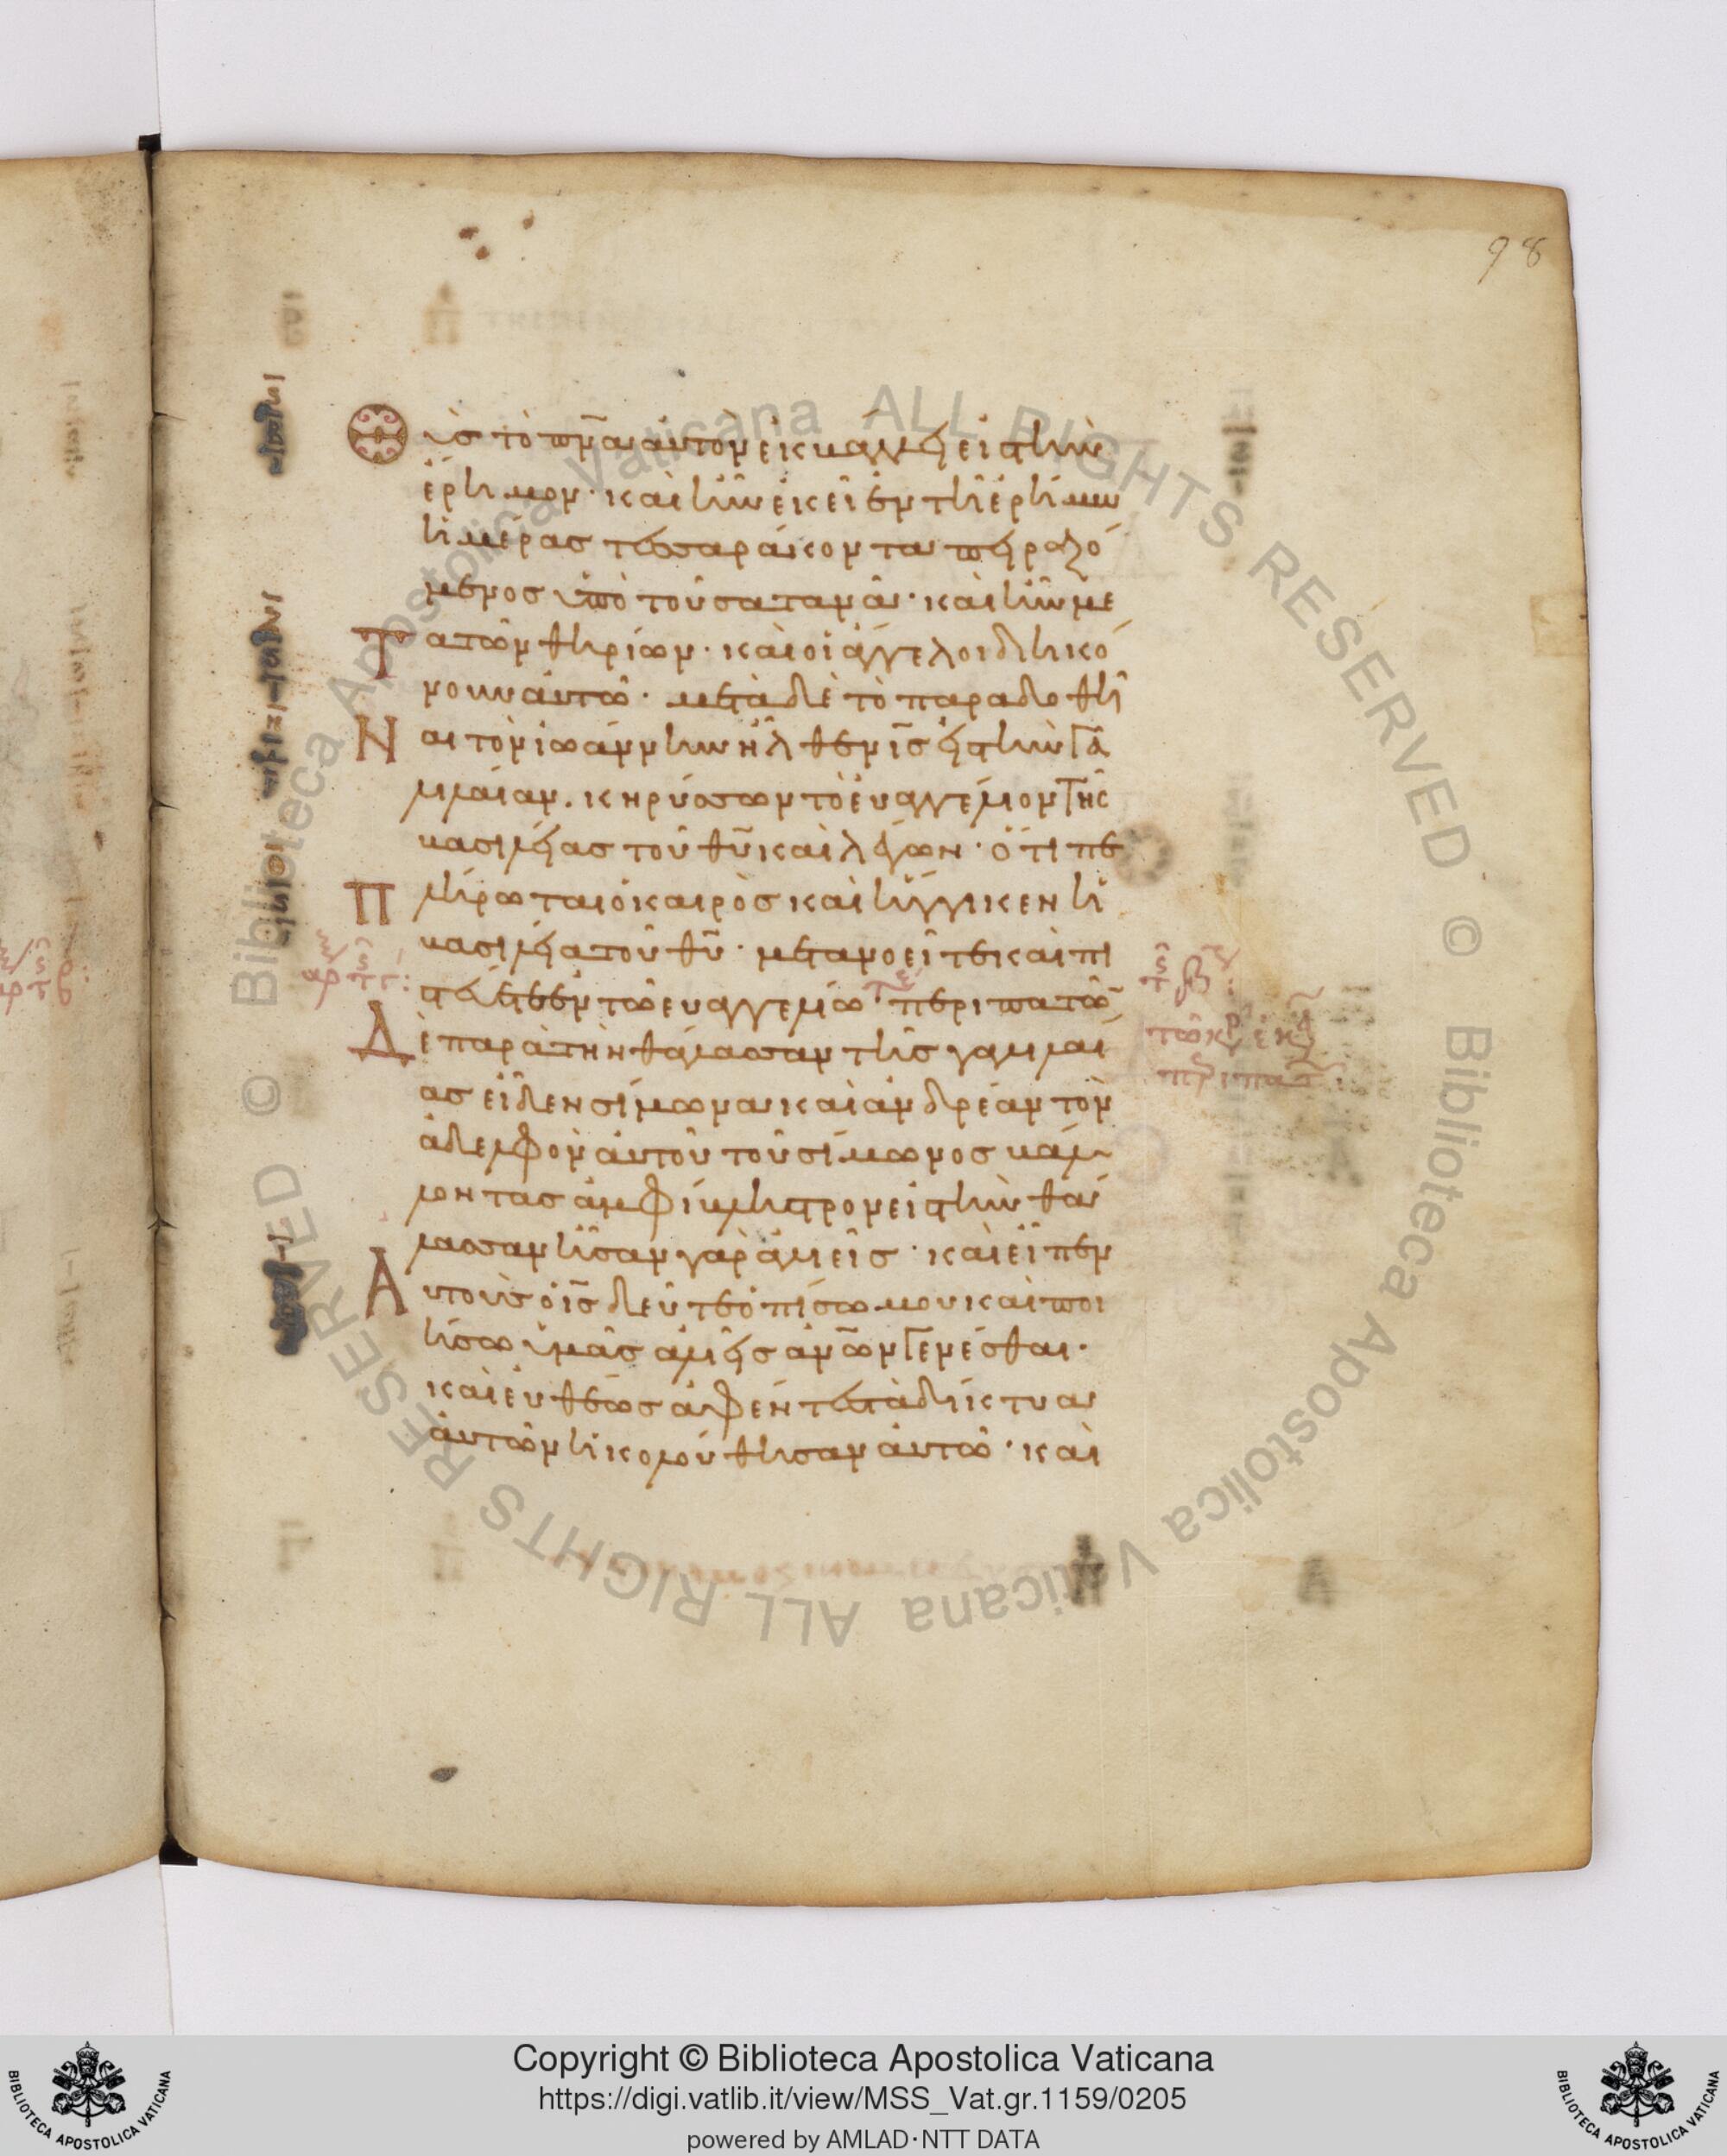 98
Θ ὺσ τὸ πν̄α αὐτὸν ἐκβάλλει εἰς τὴν
ἔρημον· καὶ ἦν ἐκεῖ ἐν τῇ ἐρήμω
ἡμέρασ τεσσαράκοντα πειραζό
μενοσ ὑπὸ τοῦ σατανᾶ· καὶ ἦν με
Τ ὰ τῶν θηρίων· καὶ οἱ ἄγγελοι διηκό
νουν αὐτῶ· μετὰ δὲ τὸ παραδοθῆ
Ν αι τὸν ἰωάννην ἦλθεν ὁ ῑσ̄ εἰς τὴν γα
λιλαίαν. κηρύσσων τὸ εὐαγγέλιον τῆς
βασιλείασ τοῦ θῡ καὶ λέγων· ὅτι πε
Π λήρωται ὁ καιρὸσ καὶ ἤγγικεν ἡ
βασιλεία τοῦ θῡ· μετανοεῖτε καὶ πι
στεύετε ἐν τῶ εὐαγγελίω· περιπατῶν
Δ ὲ παρὰ τὴν θάλασσαν τῆσ γαλιλαί
ασ εἶδεν σίμωνα καὶ ἀνδρέαν τὸν
ἀδελφὸν αὐτοῦ τοῦ σίμωνοσ βάλ
λοντασ ἀμφίβληστρον εἰς τὴν θά
λασσαν ἦσαν γὰρ ἁλιεῖσ· καὶ εἶπεν
Α ὐτοῖσ ὁ ῑσ̄ δεῦτε ὀπίσω μου καὶ ποι
ήσω ὑμᾶσ ἁλιεῖσ ἀνῶν γενέσθαι·
καὶ εὐθέωσ ἀφέντεσ τὰ δίκτυα
αὐτῶν ἠκολούθησαν αὐτῶ· καὶ
Copyright © Biblioteca Apostolica Vaticana
https://digi.vatlib.it/view/MSS_Vat.gr.1159/0205
powered by AMLAD·NTT DATA
BIBLIOTECA APOSTOLICA VATICANA
BIBLIOTECA APOSTOLICA VATICANA
© Biblioteca Apostolica Vaticana ALL RIGHTS RESERVED
© Biblioteca Apostolica Vaticana ALL RIGHTS RESERVED